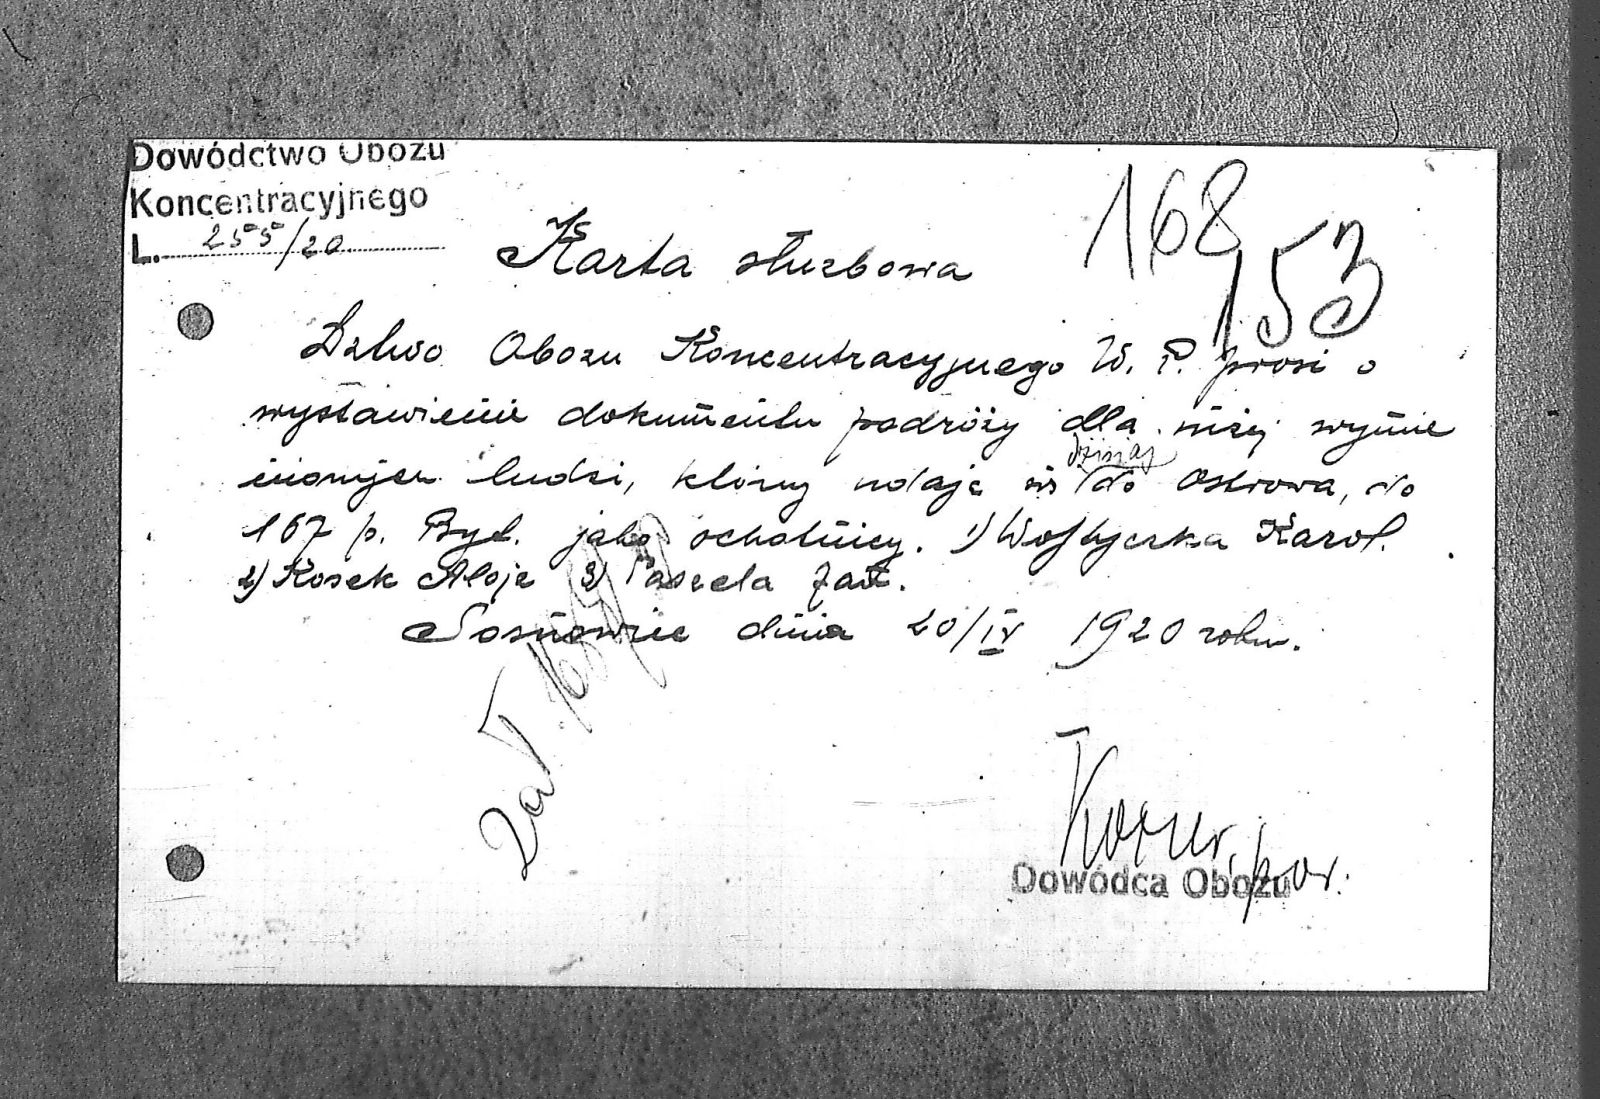 Dowództwo Obozu
Koncentracyjnego
L. 255/20
168
153
Karta służbowa
Dztwo Obozu Koncentracyjnego W. P. prosi o
wystawienie dokumentu podróży dla niżej wymie
nionych ludzi, którzy udają się dzisiaj do Ostrowa, do
167 p. Byt. jako ochotnicy. 1) Wojtyczka Karol.
2) Kosek Alojz 3) Paszela Jan.
Sosnowiec dnia 20/IV 1920 roku.
Zał.
por.
Dowódca Obozu